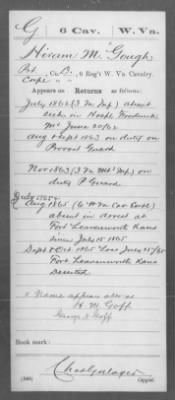 G | 6 Cav. | W. Va.
Hiram M. Gough
Pvt., Co. B, 6 Reg't W. Va. Cavalry.
Corpl " "
Appears on Returns as follows:
July 1862 (3 Va Inf) absent
sick in Hosp'l
Mc June 20/62
Aug & Sept 1863 on duty as
Provost Guard
Nov 1863 (3 Va Mt'd Inf) on
duty P Guard
July 1865 &
Aug 1865 (6 W Va Cav Co B)
absent in arrest at
Fort Leavenworth Kans
since July 15 1865
Sept & Oct 1865 Loss July 25/65
Fort Leavenworth Kans
Deserted
Name appears also as
H. M. Goff
Goff
Book mark:
(546)
Copyist.